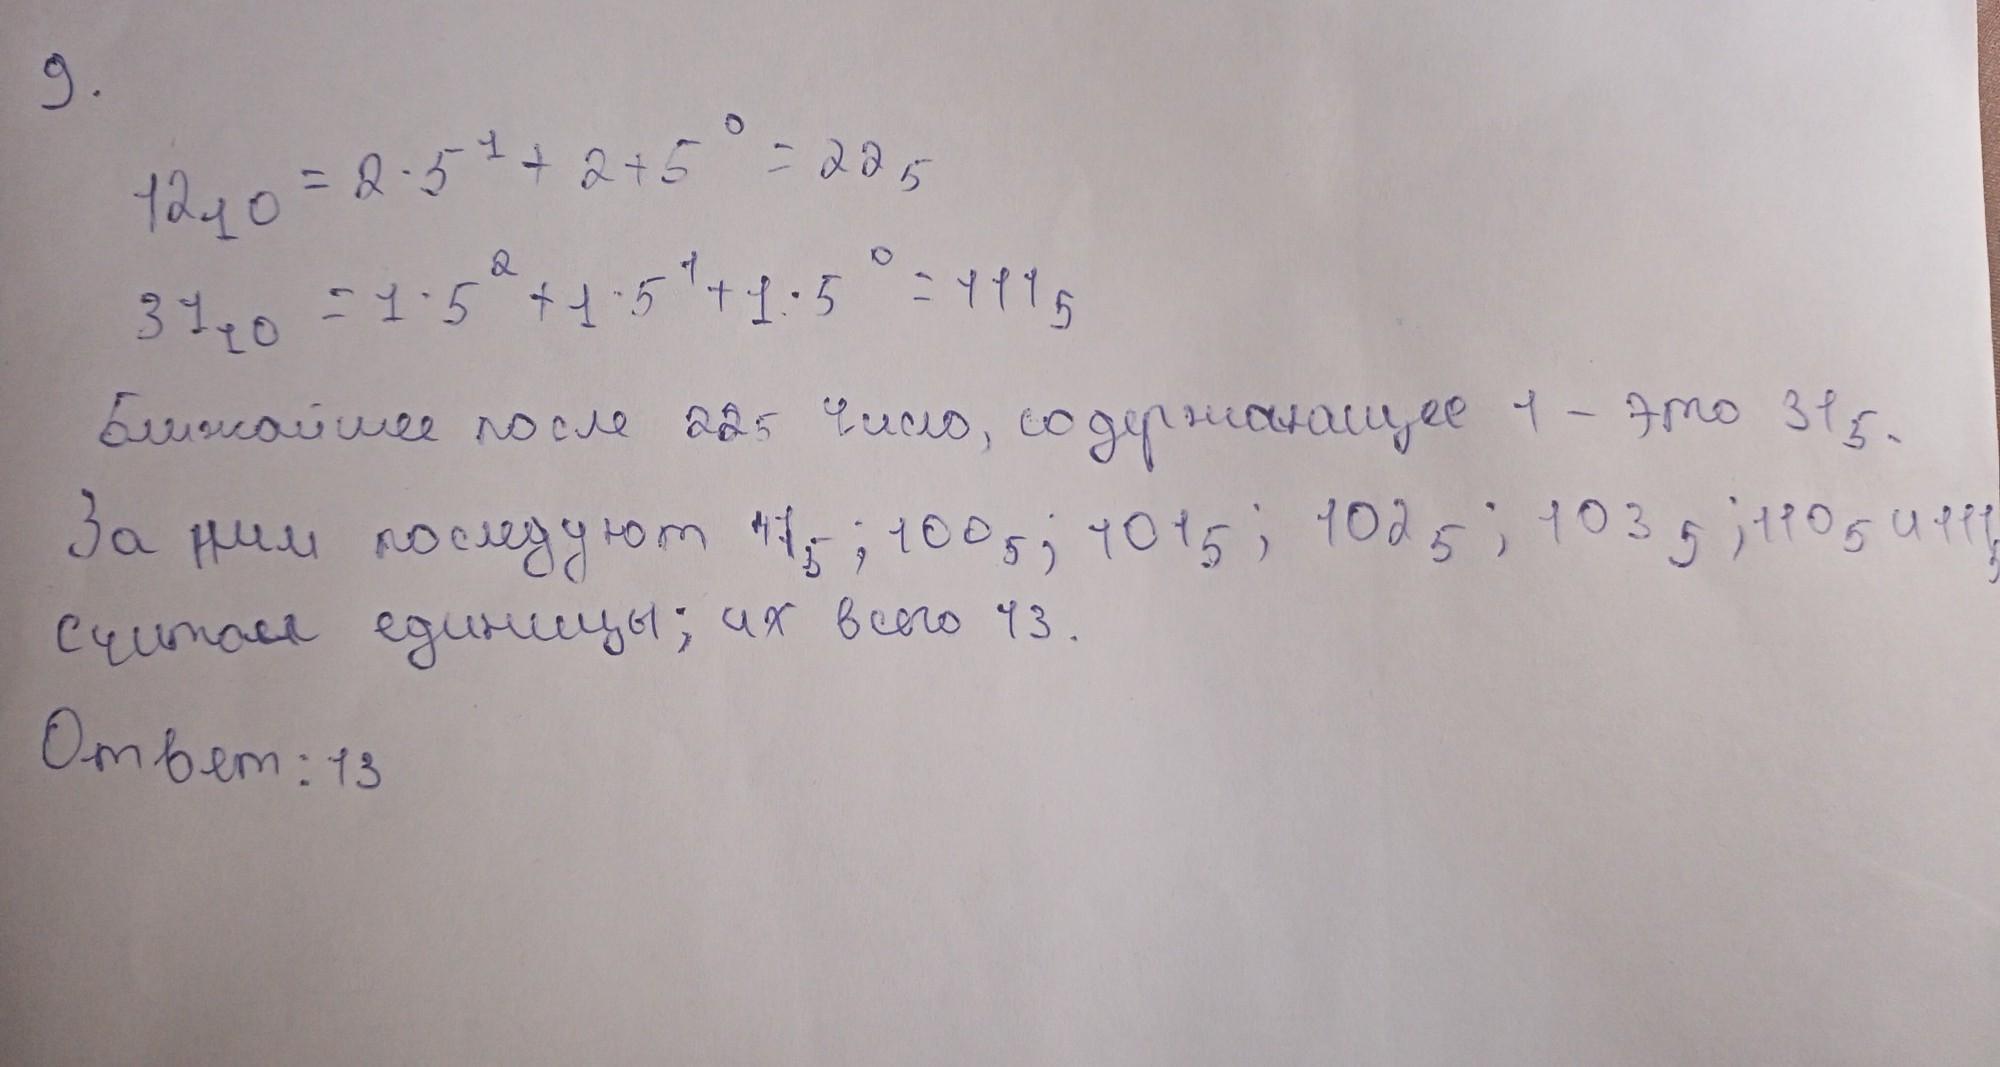 9.
12₁₀ = 2·5¹ + 2+5⁰ = 22₅
31₁₀ = 1·5² + 1·5¹ + 1·5⁰ = 111₅
Ближайшее после 22₅ число, содержащее 1 – это 31₅.
За ним последуют 41₅; 100₅; 101₅; 102₅; 103₅; 110₅ и 111₅
считаем единицы; их всего 13.
Ответ: 13